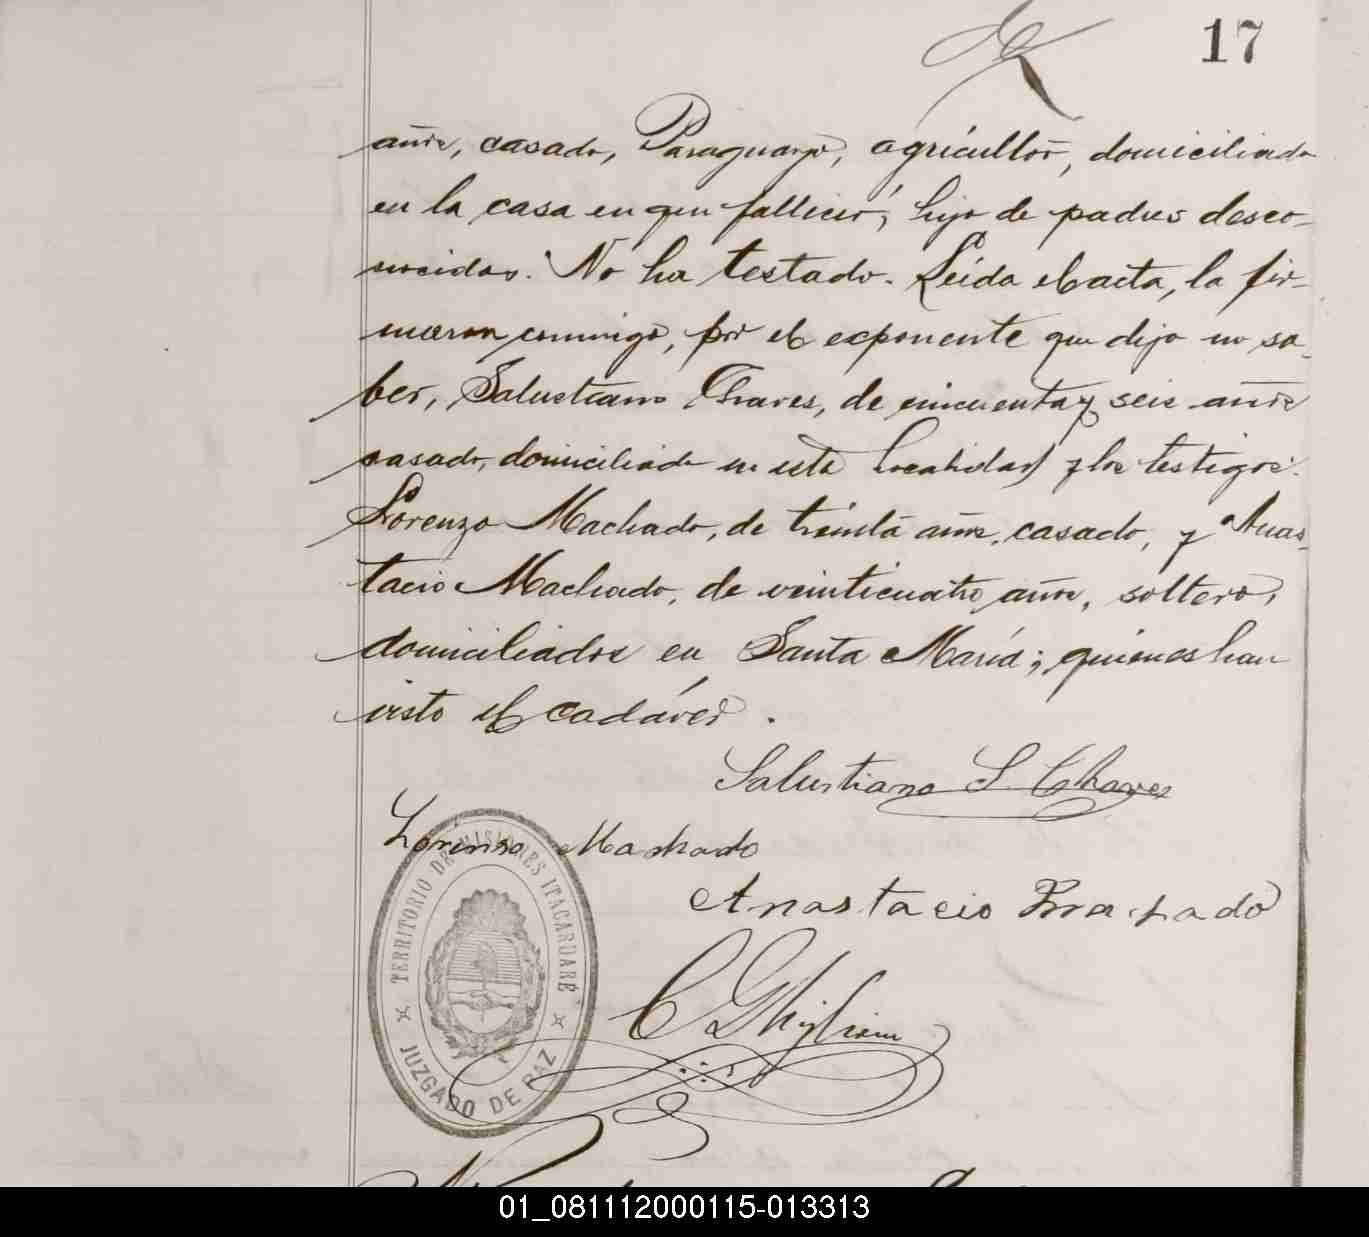 17
años, casado, Paraguayo, agricultor, domiciliado
en la casa en que falleció, hijo de padres desco-
nocidos. No ha testado. Leida el acta, la fir-
maron conmigo, por el exponente que dijo no sa-
ber, Salustiano Chaves, de cincuenta y seis años
casado, domiciliado en esta localidad y los testigos:
Lorenzo Machado, de treinta años, casado, y Anas-
tacio Machado, de veinticuatro años, soltero,
domiciliados en Santa María; quienes han
visto el cadáver.
Salustiano S. Chaves
Lorenso Machado
Anastacio Machado
TERRITORIO DE MISIONES ITACARUARÉ
JUZGADO DE PAZ
01_081112000115-013313